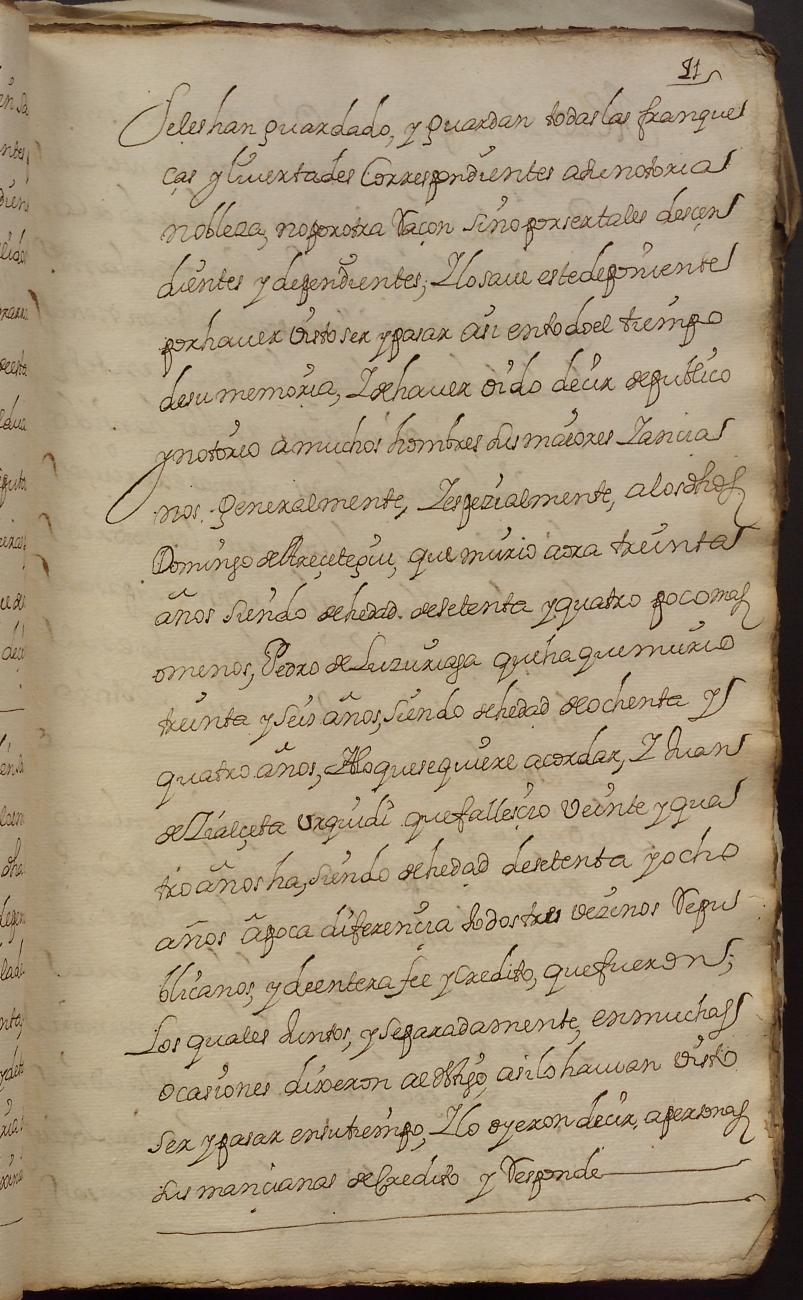 11
Seles han guardado, y guardan todas las franque
ças y livertades Correspondientes a su notoria
nobleza, no por otra Raçon sino por ser tales desçen
dientes y dependientes; Y lo save este deponiente
por haver visto ser y pasar asi en todo el tiempo
de su memoria, Y de haver oido decir de publico
y notorio a muchos hombres sus maiores Y ancia
nos. generalmente, Y espezialmente, a los dhos
Domingo de Areçetegui, que murio aora treinta
años siendo de hedad. de setenta y quatro poco mas
omenos, Pedro de Luzuriaga que ha que murio
treinta y seis años, siendo de hedad de ochenta y
quatro. años, A lo que se quiere acordar, Y Juan
de Zialçeta Urquidi que fallesçio veinte y qua
tro años ha, siendo de hedad de setenta y ocho
años a poca diferencia todos tres vezinos Repu
blicanos, y de entera fee y Credito, que fueron;
Los quales Juntos, y Separadamente, en muchas
ocasiones dixeron al testigo, asi lo havian visto
ser y pasar en su tiempo, Y lo oyeron decir, a personas
sus mancianas de Credito y Responde